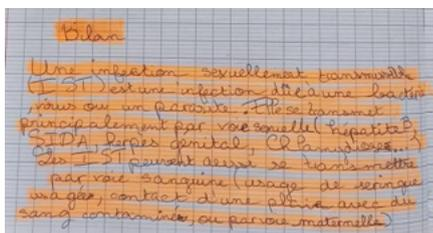 Bilan
Une infection sexuellement transmissible
(IST) est une infection dûe a une bactérie
, virus ou un parasite. Elle se transmet
principalement par voie sexuelle (hépatite B
SIDA, herpes génital, Chlamydiose...)
Les IST peuvent aussi se transmettre
par voie sanguine (usage de seringue
usagée, contact d'une plaie avec du
sang contaminée, ou par voie maternelle)